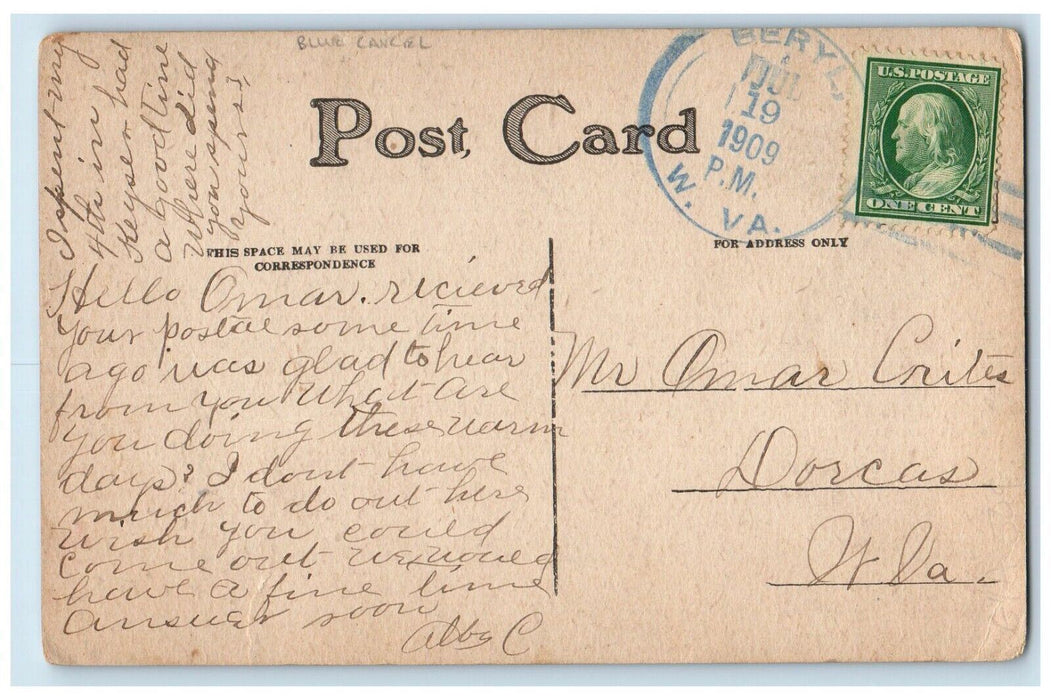 BLUE CANCEL
Post Card
BERYL,
JUL
19
1909
P.M.
W. VA.
U.S. POSTAGE
ONE CENT
I spent my
4th in
Keyser had
a good time
Where did
you spend
yours?
THIS SPACE MAY BE USED FOR
CORRESPONDENCE
FOR ADDRESS ONLY
Hello Omar. recieved
your postal some time
ago was glad to hear
from you What are
you doing these warm
days? I dont have
much to do out here
wish you could
come out we would
have a fine time
answer soon
Alby C
Mr Omar Crites
Dorcas
W Va.